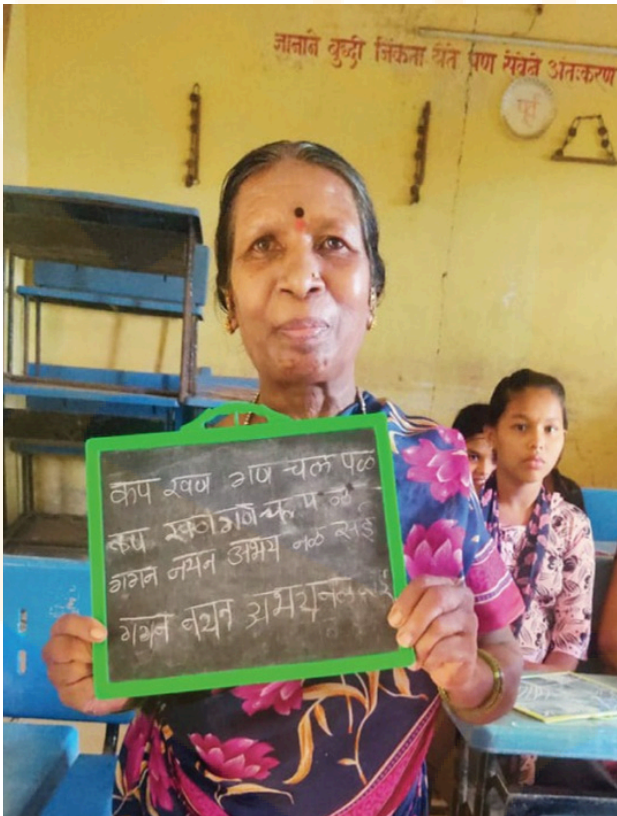 ज्ञानाने बुध्दी जिंकता येते पण सेवेने अंतःकरण
पूर्व
कप खण गण चल पळ
कप खण गण चल पळ
गगन नयन अभय नळ सई
गगन नयन अभय नळ सई